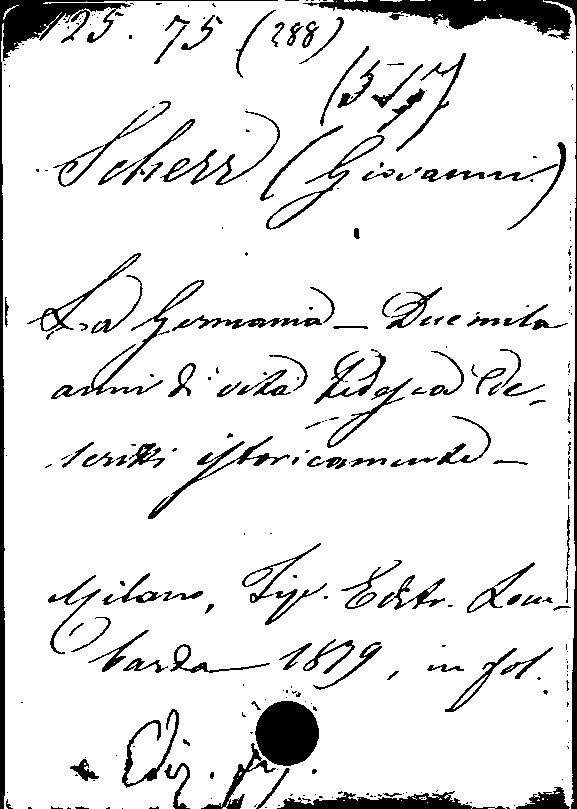 125. 75 (288)
(517)
Scherr (Giovanni)
La Germania - Duemila
anni di vita tedesca de-
scritti istoricamente -
Milano, Tip. Editr. Lom-
barda 1879, in fol.
Ediz. fig.